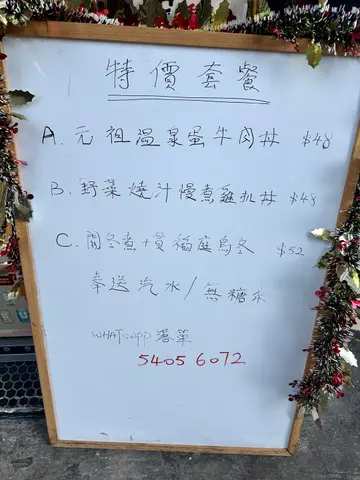 特價套餐
A. 元祖溫泉蛋牛肉丼 $48
B. 野菜燒汁慢煮雞扒丼 $48
C. 關冬煮+貢福庭烏冬 $52
奉送汽水/無糖水
WHATSapp 落單
5405 6072